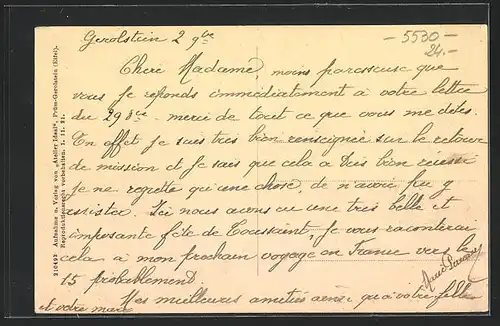 Gerolstein 2 9bre
- 5530 -
24.-
Chere Madame, moins paresseuse que
vous je reponds immédiatement à votre lettre
du 29 merci de tout ce que vous me dites.
En effet je suis très bien renseignée sur le retour
de mission et je sais que cela a très bien reussi
je ne regrette qu'une chose, de n'avoir pu y
assister. Ici nous avons eu une très belle et
imposante fête de Toussaint, je vous raconterai
cela à mon prochain voyage en France vers le
15 probablement
Mes meilleures amitiés ainsi qu'à votre fille
et votre mari
210492 Aufnahme u. Verlag von „Atelier Ideal", Prüm-Gerolstein (Eifel).
Reproduktionsrecht vorbehalten. I. 11. 21.